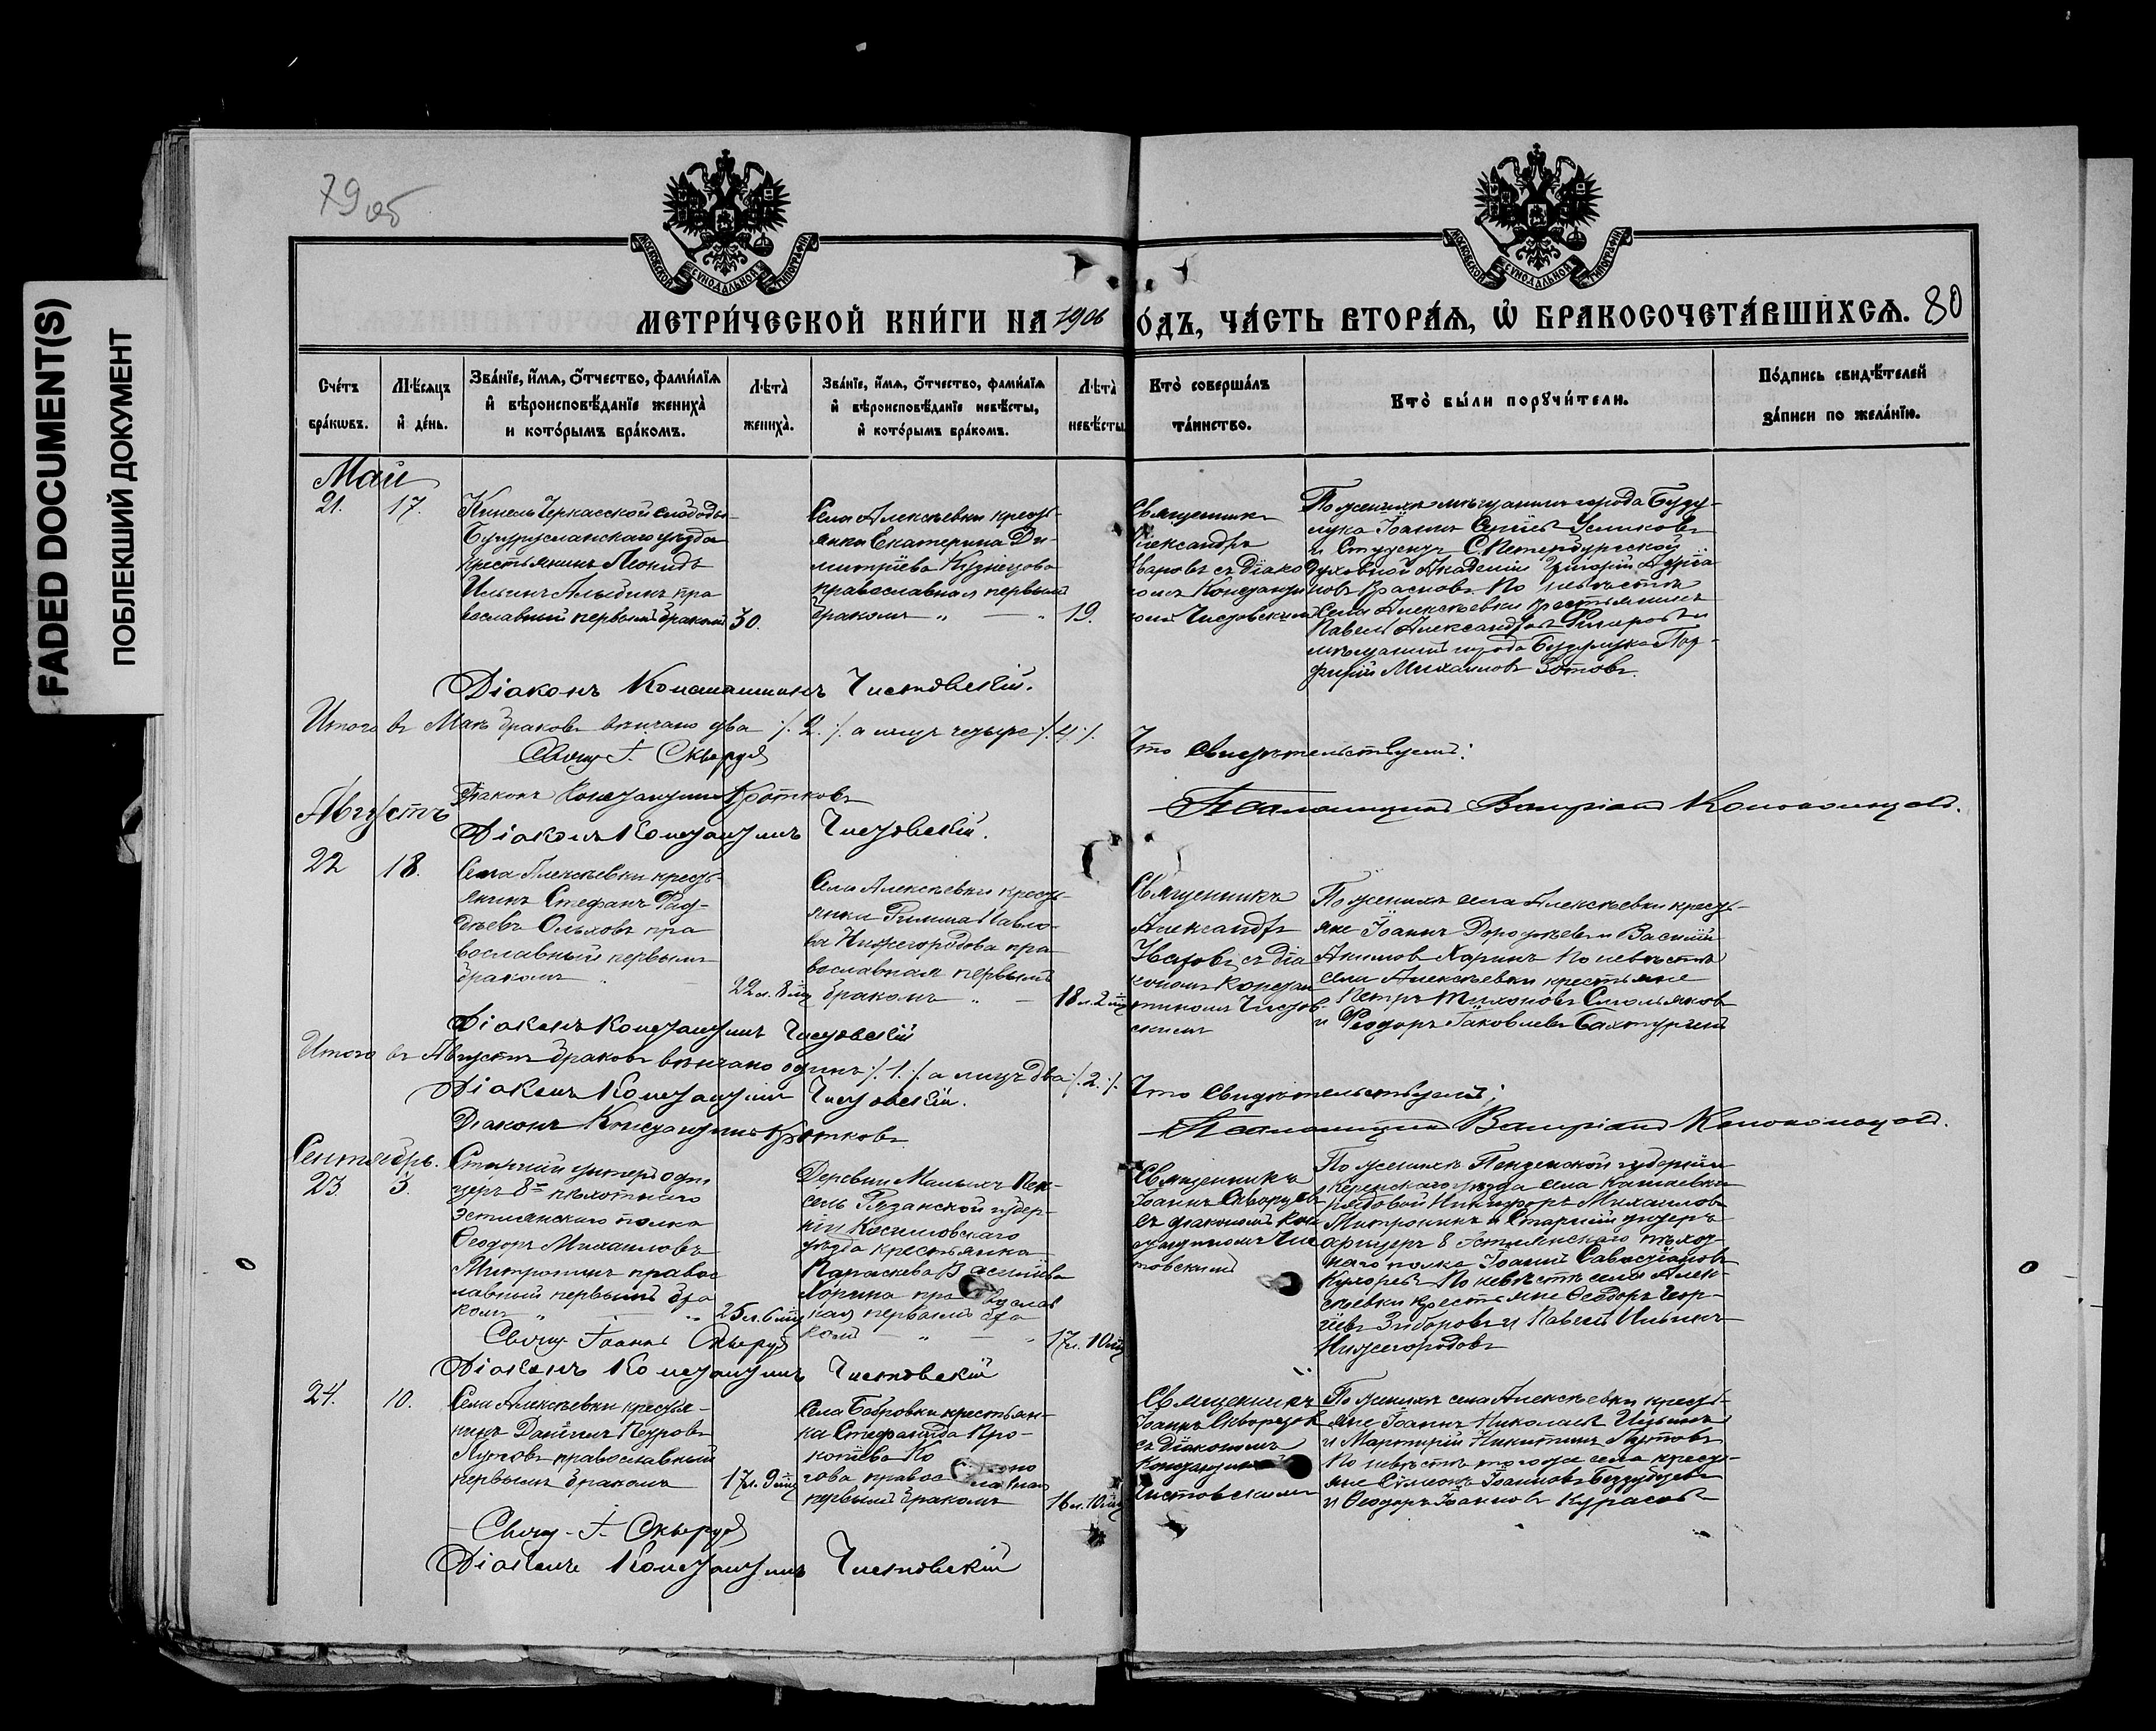 FADED DOCUMENT(S)
ПОБЛЕКШИЙ ДОКУМЕНТ
79об
МОСКОВСКОЙ СУНОДАЛЬНОЙ ТИПОГРАФІИ
МОСКОВСКОЙ СУНОДАЛЬНОЙ ТИПОГРАФІИ
МЕТРИ́ЧЕСКОЙ КНИ́ГИ НА 1906
О́ДЪ, ЧА́СТЬ ВТОРА́Я, Ѡ҆ БРАКОСОЧЕТА́ВШИХСѦ. 80
Сче́тъ
бра́кѡвъ.
Мѣ́сяцъ
и҆ де́нь.
Зва́нїе, и҆́мѧ, ѻ҆́тчество, фами́лїѧ
и҆ вѣроисповѣ́данїе жениха̀
и кото́рымъ бра́комъ.
Лѣта̀
жениха̀.
Зва́нїе, и҆́мѧ, ѻ҆́тчество, фами́лїѧ
и҆ вѣроисповѣ́данїе невѣ́сты,
и҆ кото́рымъ бра́комъ.
Лѣта̀
невѣ́сты
Кто̀ соверша́лъ
та́инство.
Кто̀ бы́ли порꙋчи́тели.
По́дпись свидѣ́телей
за́писи по жела́нїю.
Май
21.
17.
Кинель Черкасской слободы
Бугурусланскаго уѣзда
крестьянинъ Леонидъ
Ильинъ Алыбинъ пра
вославный первымъ бракомъ
30.
Села Алексѣевки кресть-
янка Екатерина Ди-
митріева Кузнецова
православная первымъ
бракомъ " — "
19.
Священникъ
Александръ
Уваровъ съ діако
номъ Константи
номъ Чистовскимъ
По женихѣ мѣщанинъ города Бузу-
лука Іоаннъ
и Студентъ С.Петербургской
Духовной Академіи Григорій
Красновъ. По невѣстѣ
села Алексѣевки крестьянинъ
Павелъ Александровъ
мѣщанинъ города Бузулука Пор-
фирій Михаиловъ Зотовъ.
Діаконъ Константинъ Чистовскій.
Итого въ Маѣ браковъ вѣнчано два ./. 2 ./. а лицъ четыре ./. 4 ./.
Что свидѣтельствуемъ:
Свящ. І. Скворцовъ
Діаконъ Константинъ Кротковъ
Псаломщикъ Валеріанъ Колокольцовъ.
Августъ
Діаконъ Константинъ Чистовскій.
22
18.
Села Алексѣевки кресть-
янинъ Стефанъ Фад-
дѣевъ Ольховъ пра
вославный первымъ
бракомъ " —
22 л. 8 мц
Села Алексѣевки кресть-
янка Римма Павло-
ва Нижегородова пра
вославная первымъ
бракомъ " —
18 л. 2 мц
Священникъ
Александръ
Уваровъ съ діа
кономъ Констан
тиномъ Чистов
скимъ
По женихѣ села Алексѣевки кресть-
яне Іоаннъ Дороѳѣевъ и Василій
Акимовъ Харинъ По невѣстѣ
села Алексѣевки крестьяне
Петръ Тихоновъ Смольяковъ
и Ѳеодоръ Іаковлевъ Бахтуринъ
Діаконъ Константинъ Чистовскій
Итого въ Августѣ браковъ вѣнчано одинъ ./. 1 ./. а лицъ два ./. 2 ./.
Что свидѣтельствуемъ:
Діаконъ Константинъ Чистовскій.
Діаконъ Константинъ Кротковъ
Псаломщикъ Валеріанъ Колокольцовъ.
Сентябрь.
23.
3.
Старшій унтеръ офи
церъ 8го пѣхотнаго
Эстлянскаго полка
Ѳеодоръ Михаиловъ
Митрошинъ правос
лавный первымъ бра
комъ " — "
25 л. 6 мц
Деревни Малыхъ Пек-
селъ Рязанской губер-
ніи Касимовскаго
уѣзда крестьянка
Параскева Василіева
Хорина православ
ная первымъ бра
комъ — " — "
17 л. 10 мц
Священникъ
Іоаннъ Скворцовъ
съ діакономъ Кон
стантиномъ Чис
товскимъ
По женихѣ Пензенской губерніи
Керенскаго уѣзда села Кашаевки
рядовой Никифоръ Михаиловъ
Митрошинъ и Старшій унтеръ
офицеръ 8 Эстлянскаго пѣхот
наго полка Іоаннъ
По невѣстѣ села Алек-
сѣевки крестьяне Ѳеодоръ Геор-
гіевъ Зиборовъ и Павелъ Ильинъ
Нижегородовъ
Свящ. Іоаннъ Скворцовъ
Діаконъ Константинъ Чистовскій
24.
10.
Села Алексѣевки крестья-
нинъ Даніилъ Петровъ
Лутовъ православный
первымъ бракомъ
17 л. 9 мц
Села Бобровки крестьян-
ка Стефанида Про-
копіева Ко
гова православная
первымъ бракомъ
16 л. 10 мц
Священникъ
Іоаннъ Скворцовъ
съ діакономъ
Константиномъ
Чистовскимъ
По женихѣ села Алексѣевки кресть-
яне Іоаннъ Николаевъ Ильинъ
и Мартирій Никитинъ Лутовъ
По невѣстѣ того же села кресть-
яне Симеонъ Іоанновъ Беззубцевъ
и Ѳеодоръ Іоанновъ Курасовъ
Свящ. І. Скворцовъ
Діаконъ Константинъ Чистовскій